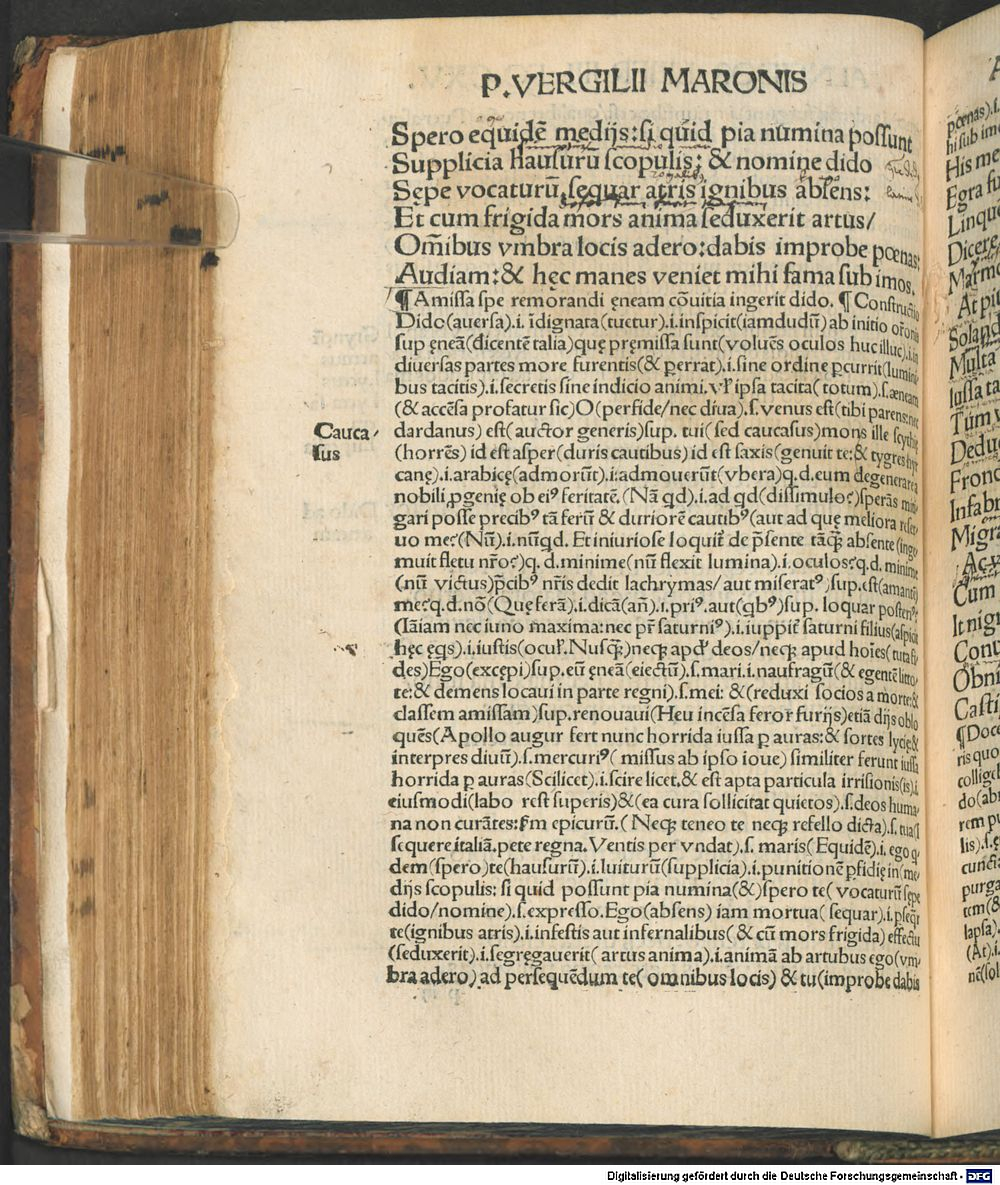 P. VERGILII MARONIS
Spero equidē medijs: si quid pia numina possunt
Supplicia hausurū scopulis: & nomine dido
Sępe vocaturū, sequar atris ignibus absens:
Et cum frigida mors anima seduxerit artus/
Om̄ibus vmbra locis adero: dabis improbe pœnas:
Audiam: & hęc manes veniet mihi fama sub imos.
¶ Amissa spe remorandi ęneam cōuitia ingerit dido. ¶ Constructio
Dido (auersa).i. īdignata (tuetur).i. inspicit (iamdudū) ab initio orōnis
sup ęneā (dicentē talia) quę pręmissa sunt (voluēs oculos huc illuc).i. in
diuersas partes more furentis (& perrat).i. sine ordine ꝑcurrit (lumini
bus tacitis).i. secretis sine indicio animi. vl' ipsa tacita (totum).s. æneam
(& accēsa profatur sic) O (perfide/nec diua).s. venus est (tibi parens: nec
Cauca-
sus
dardanus) est (auctor generis) sup. tui (sed caucasus) mons ille scythię
(horrēs) id est asper (duris cautibus) id est saxis (genuit te: & tygres hyr
canę).i. arabicę (admorūt).i: admouerūt (vbera) q.d. eum degenerare a
nobili ꝓgenię ob eiꝰ feritatē. (Nā qd).i. ad qd (dissimulo?) sperās miti
gari posse precibꝰ tā ferū & duriorē cautibꝰ (aut ad quę meliora reser
uo me?(Nū).i. nūqd. Et iniuriose loquit᷑ de p̄sente tāꝙ̄ absente (inge
muit fletu nr̄o?) q. d. minime (nū flexit lumina).i. oculos? q.d. minime
(nū victus) p̄cibꝰ nr̄is dedit lachrymas/ aut miseratꝰ) sup. est (amantē)
me? q.d. nō (Quę ferā).i. dicā (an̄).i. priꝰ. aut (qbꝰ) sup. loquar posteriꝰ?
(Iāiam nec iuno maxima: nec pr̄ saturniꝰ).i. iuppit᷑ saturni filius (aspicit
hęc ęqs).i. iustis (ocul'. Nusꝙ̄) neqꝫ apd' deos/neqꝫ apud hoīes (tuta fi
des) Ego (excępi) sup. eū ęneā (eiectū).s. mari.i. naufragū (& egentē litto
te: & demens locaui in parte regni).s. mei: & (reduxi socios a morte: &
classem amissam) sup. renouaui (Heu incēsa feror furijs) etiā dijs oblo
quēs (Apollo augur fert nunc horrida iussa ꝑ auras: & sortes lycię: &
interpres diuū).s. mercuriꝰ (missus ab ipso ioue) similiter ferunt iussa
horrida ꝑ auras (Scilicet).i. scire licet. & est apta particula irrisionis (is).i.
eiusmodi (labo rest superis) & (ea cura sollicitat quietos).s. deos huma/
na non curātes: ẜm epicurū. (Neqꝫ teneo te neqꝫ refello dicta).s. tua (I
sequere italiā. pete regna. Ventis per vndas).s. maris (Equidē).i. ego q
dem (spero) te (hausurū).i. luiturū (supplicia).i. punitionē ꝑfidię in (me
dijs scopulis: si quid possunt pia numina (&) spero te (vocaturū sępe
dido/nomine).s. expresso. Ego (absens) iam mortua (sequar).i. ꝑseqr
te (ignibus atris).i. infestis aut infernalibus (& cū mors frigida) effectu
(seduxerit).i. segręgauerit (artus anima).i. animā ab artubus ego (vm/
bra adero) ad persequēdum te (omnibus locis) & tu (improbe dabis
pœnas).i.
hi sub imo
His me
Egra fu
Linqu
Dicere
Marmo
At pi
Soland
Multa
Iussa ta
Tum v
Deduc
Frond
Infabr
Migra
Ac v
Cum
It nigr
Conu
Obni
Casti
¶ Doce
ris quo
collige
do (abr
rem pu
lis).s. ę
cuncta
purga
tem (&
lapsa).
(At).i.
nē (sol
Digitalisierung gefördert durch die Deutsche Forschungsgemeinschaft - DFG